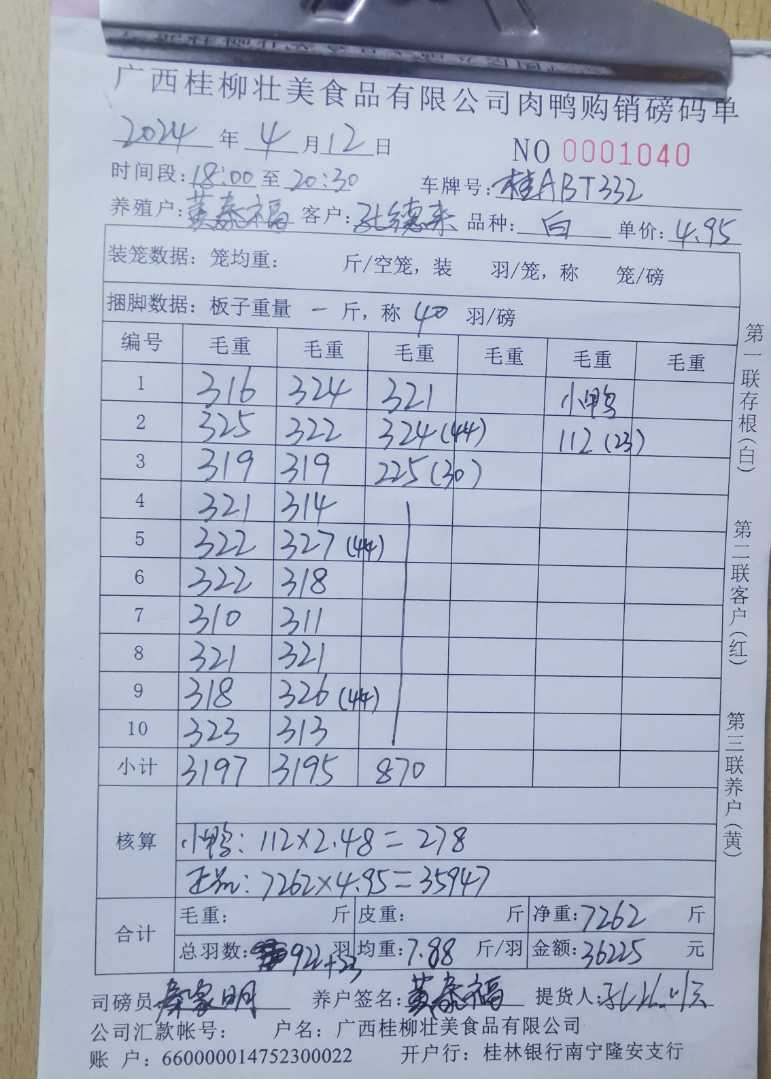 广西桂柳壮美食品有限公司肉鸭购销磅码单
2024 年 4 月 12 日 NO 0001040
时间段: 18:00 至 20:30 车牌号: 桂ABT332
养殖户: 黄泰福 客户: 张德来 品种: 白 单价: 4.95
装笼数据: 笼均重: 斤/空笼, 装 羽/笼, 称 笼/磅
捆脚数据: 板子重量 一 斤, 称 40 羽/磅
编号 毛重 毛重 毛重 毛重 毛重 毛重
1 316 324 321 小鸭
2 325 322 324(44) 112(23)
3 319 319 225(30)
4 321 314
5 322 327(44)
6 322 318
7 310 311
8 321 321
9 318 326(44)
10 323 313
小计 3197 3195 870
核算
小鸭: 112×2.48=278
正品: 7262×4.95=35947
合计
毛重: 斤 皮重: 斤 净重: 7262 斤
总羽数: 922+23 羽 均重: 7.88 斤/羽 金额: 36225 元
司磅员 秦家明 养户签名: 黄泰福 提货人:
公司汇款帐号: 户名: 广西桂柳壮美食品有限公司
账 户: 660000014752300022 开户行: 桂林银行南宁隆安支行
第一联存根(白)
第二联客户(红)
第三联养户(黄)